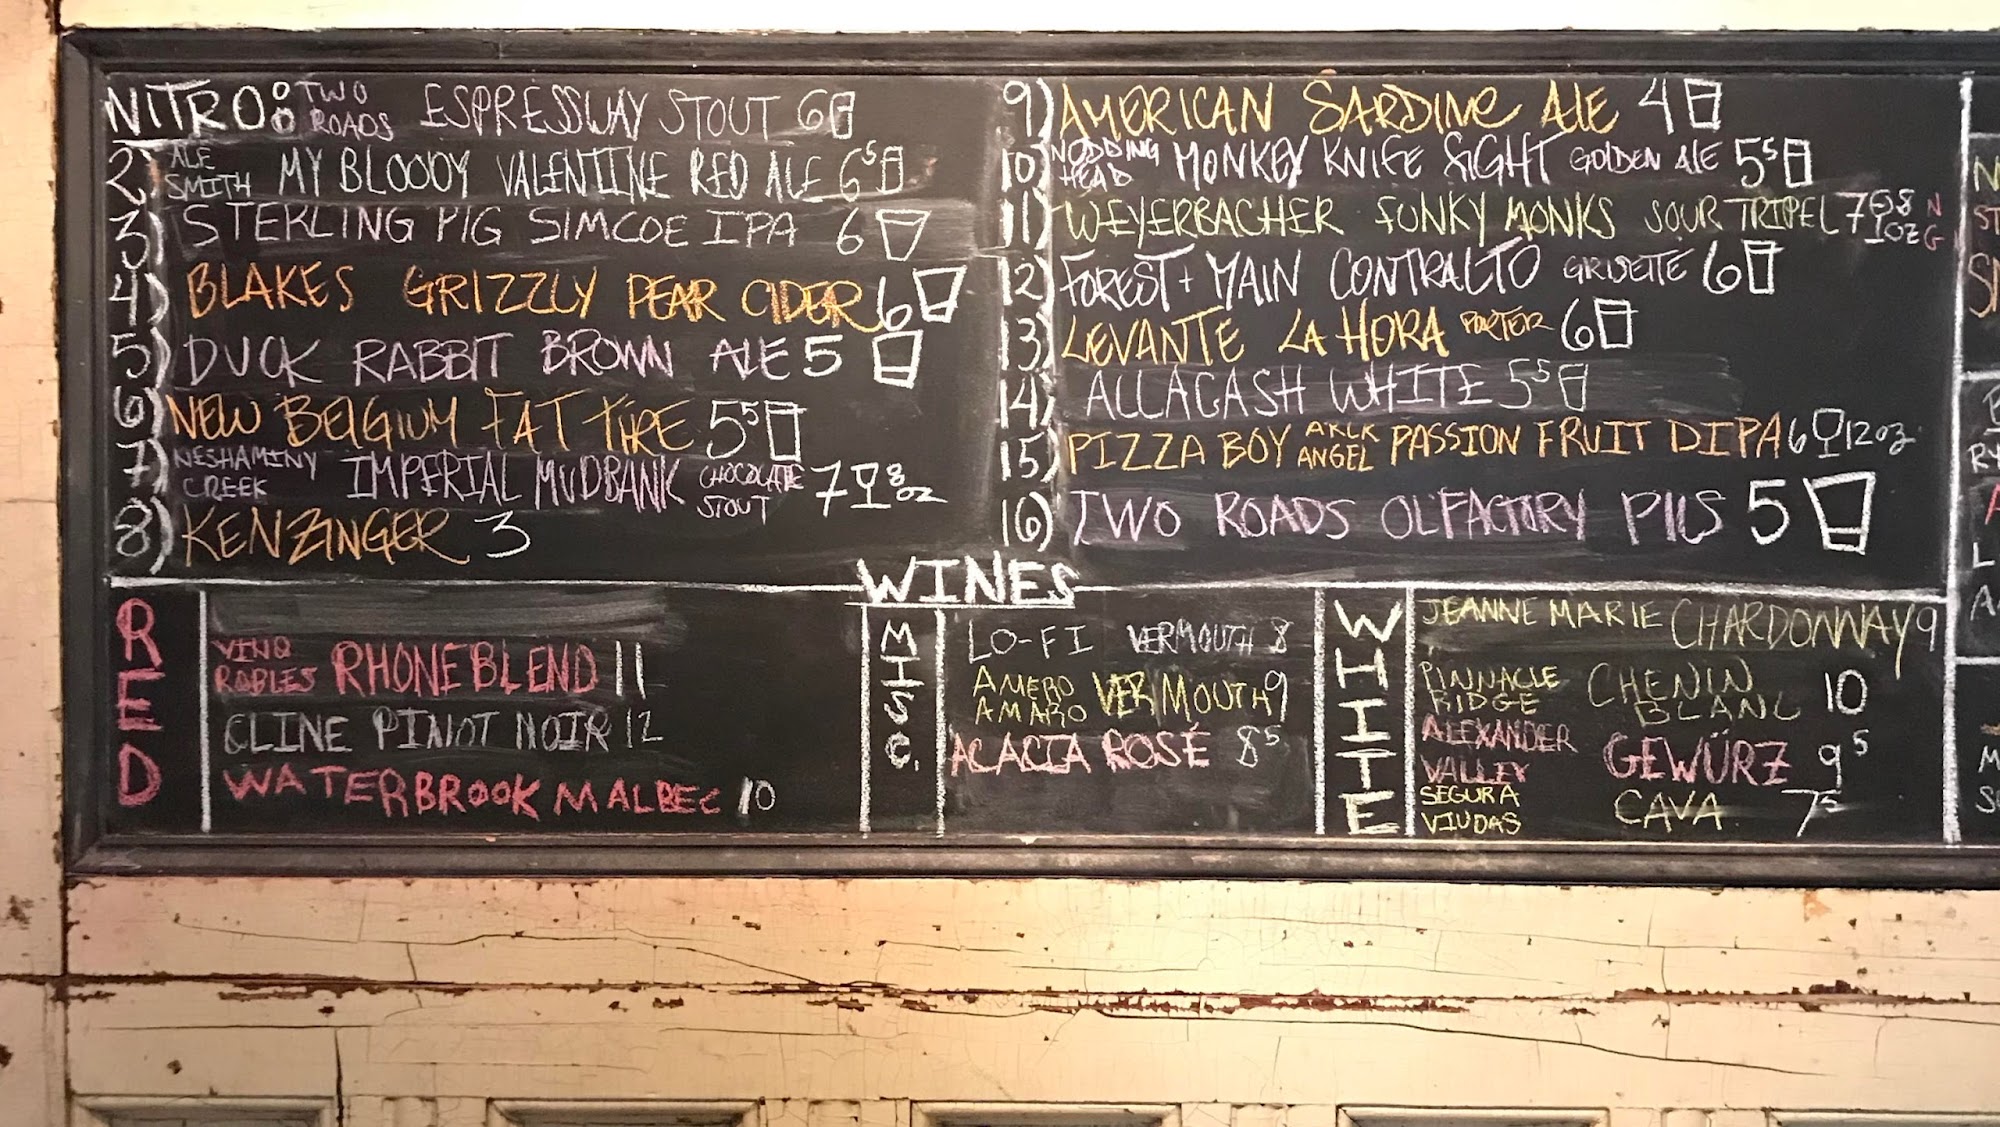 NITRO: TWO ROADS ESPRESSWAY STOUT 6
2) ALE SMITH MY BLOODY VALENTINE RED ALE 6⁵
3) STERLING PIG SIMCOE IPA 6
4) BLAKES GRIZZLY PEAR CIDER 6
5) DUCK RABBIT BROWN ALE 5
6) NEW BELGIUM FAT TIRE 5⁵
7) NESHAMINY CREEK IMPERIAL MUDBANK CHOCOLATE STOUT 7 8 OZ
8) KENZINGER 3
9) AMERICAN SARDINE ALE 4
10) NODDING HEAD MONKEY KNIFE FIGHT GOLDEN ALE 5⁵
11) WEYERBACHER FUNKY MONKS SOUR TRIPEL 7 8 OZ
12) FOREST + MAIN CONTRALTO GRISETTE 6
13) LEVANTE LA HORA PORTER 6
14) ALLAGASH WHITE 5⁵
15) PIZZA BOY ANGEL PASSION FRUIT DIPA 6 12 oz
16) TWO ROADS OLFACTORY PILS 5
WINES
RED
VINO ROBLES RHONE BLEND 11
CLINE PINOT NOIR 12
WATERBROOK MALBEC 10
MISC.
LO-FI VERMOUTH 8
AMERO AMARO VERMOUTH 9
ACACIA ROSÉ 8⁵
WHITE
JEANNE MARIE CHARDONNAY 9
PINNACLE RIDGE CHENIN BLANC 10
ALEXANDER VALLEY GEWÜRZ 9⁵
SEGURA VIUDAS CAVA 7⁵